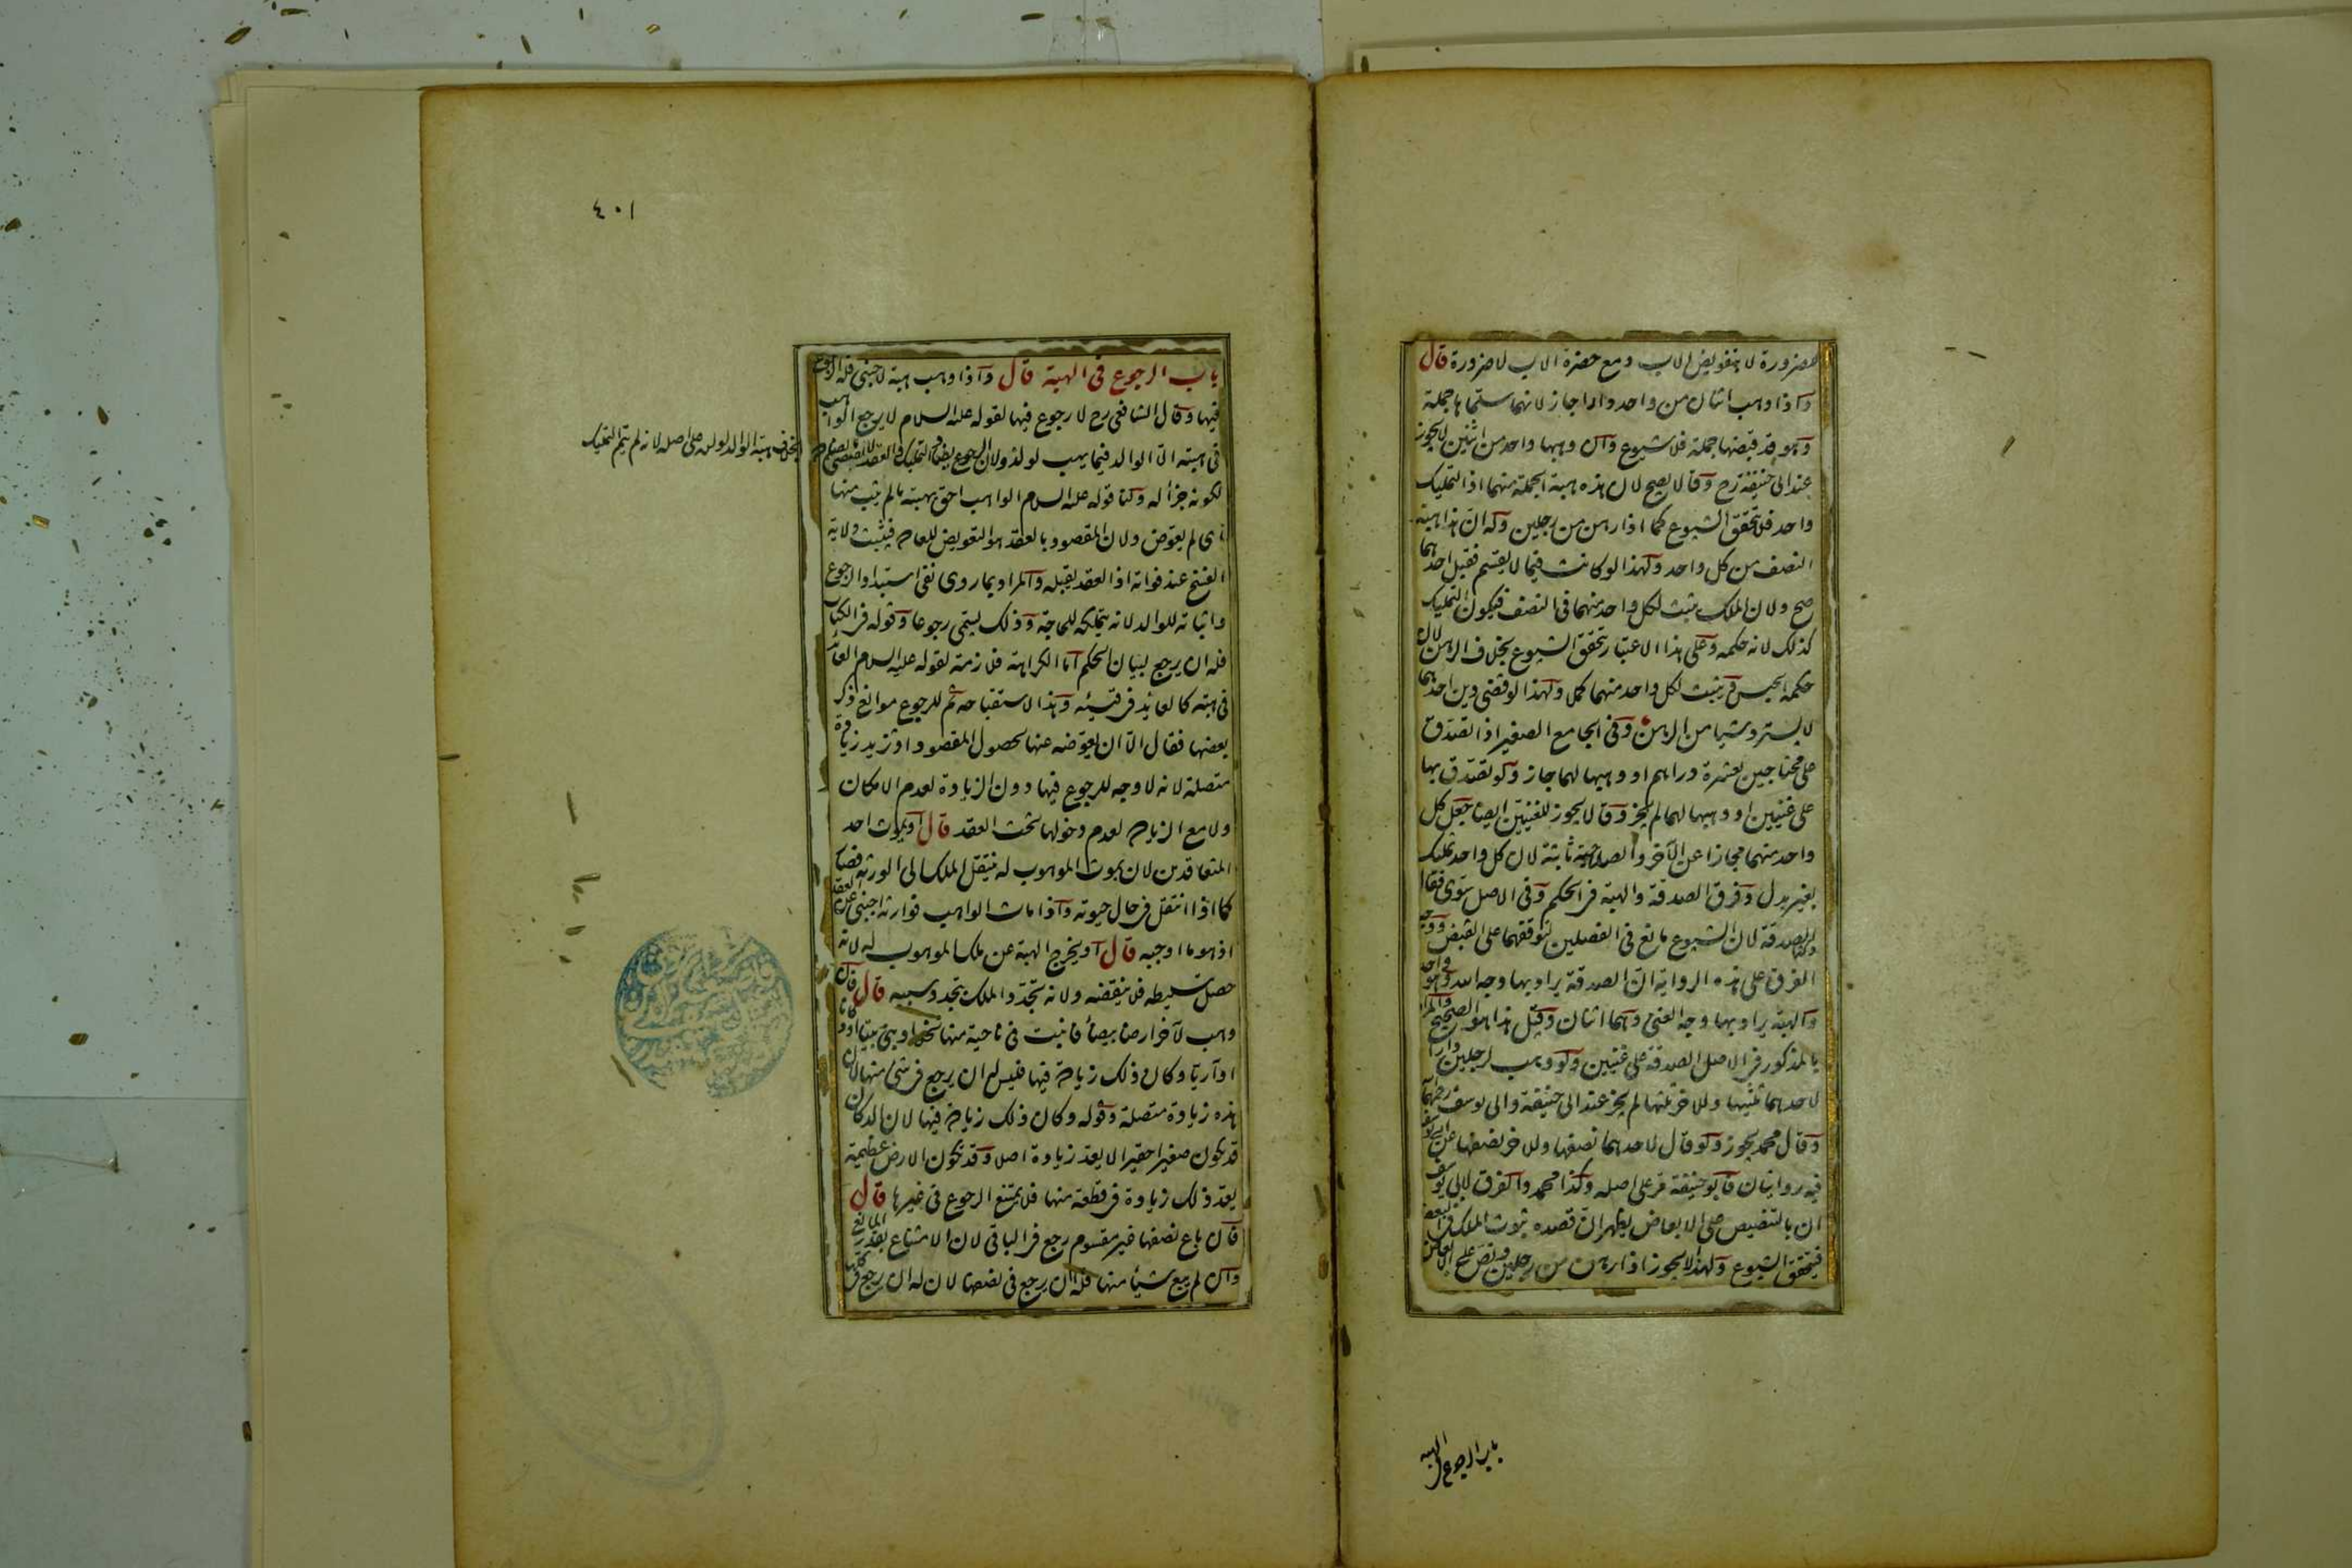 للضرورة لا بتفويض الاب ومع حضرة الاب لا ضرورة قال
واذا وهب اثنان من واحد دارا جاز لانهما سلماها جملة
وهو قد قبضها جملة فلا شيوع وان وهبها واحد من اثنين لا يجوز
عند ابى حنيفة رح وقالا يصح لان هذه هبة الجملة منهما اذ التمليك
واحد فلا يتحقق الشيوع كما اذا رهن من رجلين وله ان هذا هبة
النصف من كل واحد ولهذا لو كانت فيما لا يقسم فقبل احدهما
صح ولان الملك يثبت لكل واحد منهما فى النصف فيكون التمليك
كذلك لانه حكمه وعلى هذا الاعتبار يتحقق الشيوع بخلاف الرهن لان
حكمه الحبس ويثبت لكل واحد منهما كملا ولهذا لو قضى دين احدهما
لا يسترد شيا من الرهن وفى الجامع الصغير اذا تصدق
على محتاجين بعشرة دراهم او وهبها لهما جاز ولو تصدق بها
على غنيين او وهبها لهما لم يجز وقالا يجوز للغنيين ايضا جعل كل
واحد منهما مجازا عن الآخر والصلاحية ثابتة لان كل واحد تمليك
بغير بدل وفرق بين الصدقة والهبة فى الحكم وفى الاصل سوى فقال
وكذا الصدقة لان الشيوع مانع فى الفصلين لتوقفهما على القبض ووجه
الفرق على هذه الرواية ان الصدقة يراد بها وجه الله وهو واحد
والهبة يراد بها وجه الغنى وهما اثنان وقيل هذا هو الصحيح والمراد
بالمذكور فى الاصل الصدقة على غنيين ولو وهب لرجلين دارا
لاحدهما ثلثيها وللاخر ثلثها لم يجز عند ابى حنيفة وابى يوسف رحمهما
وقال محمد يجوز ولو قال لاحدهما نصفها وللاخر نصفها عن ابى يوسف
فيه روايتان فابو حنيفة مر على اصله وكذا محمد والفرق لابى يوسف
ان بالتنصيص على الابعاض يظهر ان قصده ثبوت الملك فى البعض
فيتحقق الشيوع ولهذا لا يجوز اذا رهن من رجلين ونص على الابعاض
باب الرجوع الهبة
٤٠١
باب الرجوع فى الهبة قال واذا وهب هبة لاجنبى فله الرجوع
فيها وقال الشافعى رح لا رجوع فيها لقوله عليه السلام لا يرجع الواهب
فى هبته الا الوالد فيما يهب لولده ولان الرجوع يضاد التمليك والعقد لا يقتضى ما يضاده
بخلاف هبة الوالد لولده على اصله لانه لم يتم التمليك
لكونه جزأ له ولنا قوله عليه السلام الواهب احق بهبته ما لم يثب منها
اى لم يعوض ولان المقصود بالعقد هو التعويض للعادة فيثبت ولاية
الفسخ عند فواته اذ العقد يقبله والمراد بما روى نفى استبداد الرجوع
واثباته للوالد لانه يتملكه للحاجة وذلك يسمى رجوعا وقوله فى الكتاب
فله ان يرجع لبيان الحكم اما الكراهة فلازمة لقوله عليه السلام العائد
فى هبته كالعائد فى قيئه وهذا لاستقباحه ثم للرجوع موانع ذكر
بعضها فقال الا ان يعوضه عنها لحصول المقصود او تزيد زيادة
متصلة لانه لا وجه للرجوع فيها دون الزيادة لعدم الامكان
ولا مع الزيادة لعدم دخولها تحت العقد قال او يموت احد
المتعاقدين لان بموت الموهوب له ينتقل الملك الى الورثة فصار
كما اذا انتقل فى حال حيوته واذا مات الواهب فوارثه اجنبى عن العقد
اذ هو ما اوجبه قال او يخرج الهبة عن ملك الموهوب له لانه
حصل بتسليطه فلا ينقضه ولانه تجدد الملك بتجدد سببه قال فان
وهب لآخر ارضا بيضاء فانبت فى ناحية منها نخلا او بنى بيتا او دكانا
او آريا وكان ذلك زيادة فيها فليس له ان يرجع فى شئ منها لان
هذه زيادة متصلة وقوله وكان ذلك زيادة فيها لان الدكان
قد يكون صغيرا حقيرا لا يعد زيادة اصلا وقد تكون الارض عظيمة
يعد ذلك زيادة فى قطعة منها فلا يمتنع الرجوع فى غيرها قال
فان باع نصفها غير مقسوم رجع فى الباقى لان الامتناع بقدر المانع
وان لم يبع شيأ منها فله ان يرجع فى نصفها لان له ان يرجع فى كلها